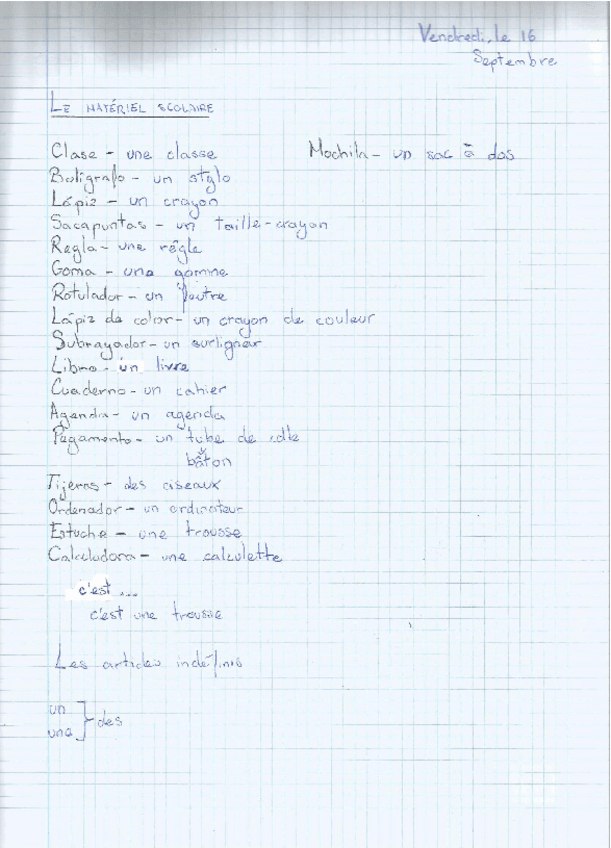 Vendredi, le 16
Septembre
LE MATÉRIEL SCOLAIRE
Clase - une classe
Mochila - un sac à dos
Bolígrafo - un stylo
Lápiz - un crayon
Sacapuntas - un taille-crayon
Regla - une règle
Goma - une gomme
Rotulador - un feutre
Lápiz de color - un crayon de couleur
Subrayador - un surligneur
Libro - un livre
Cuaderno - un cahier
Agenda - un agenda
Pegamento - un tube de colle
bâton
Tijeras - des ciseaux
Ordenador - un ordinateur
Estuche - une trousse
Calculadora - une calculette
c'est ...
c'est une trousse
Les articles indéfinis
un
des
une